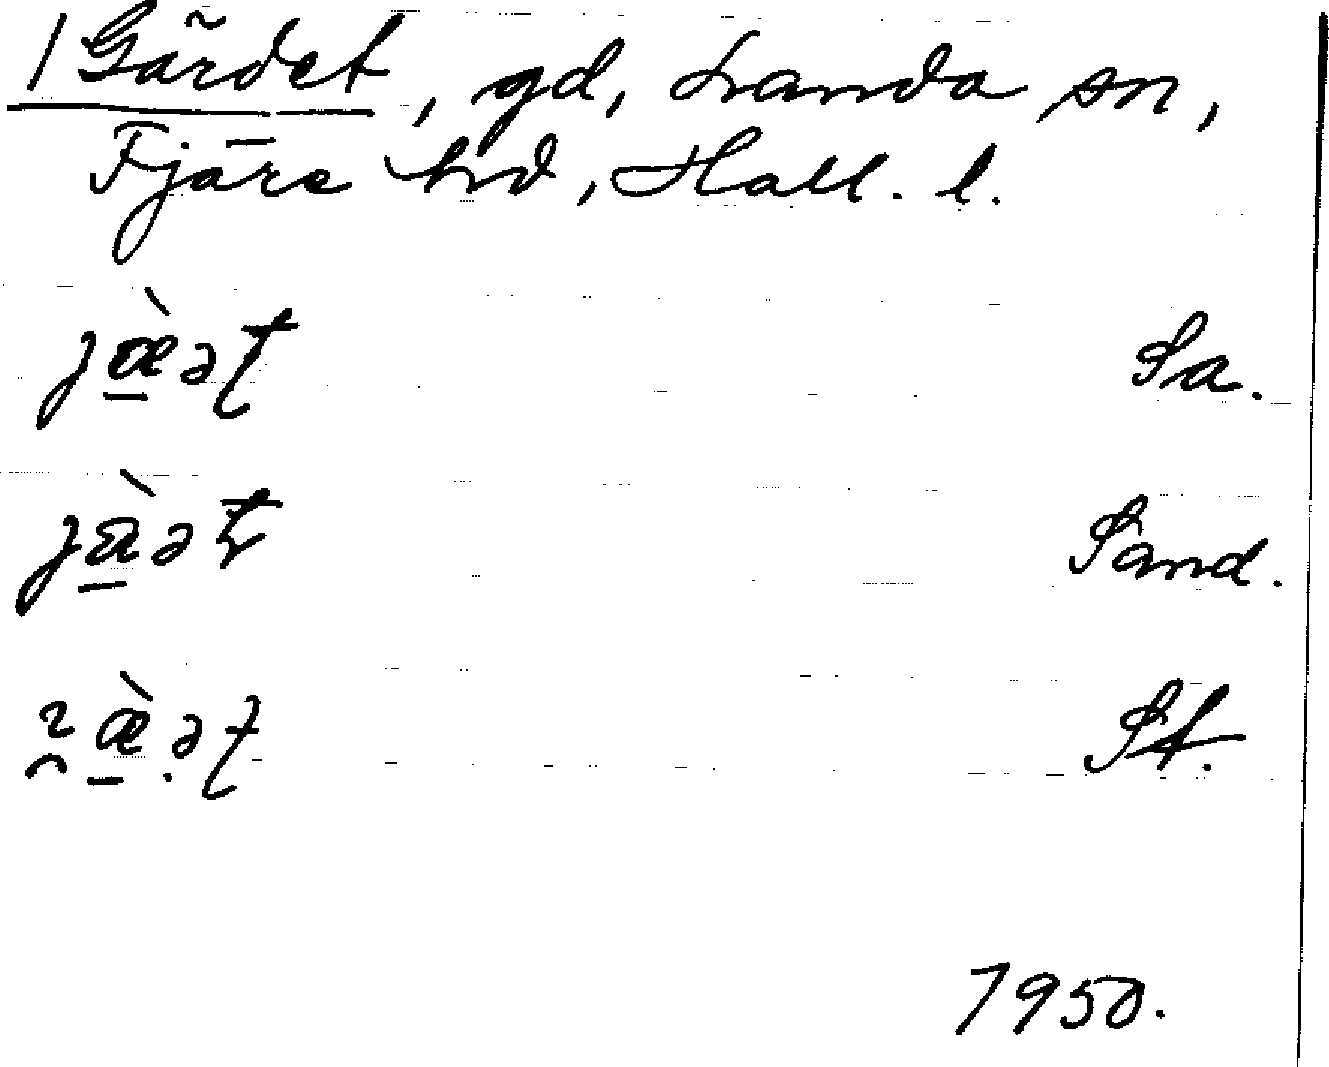 / Gärdet, gd, Landa sn,
Fjäre hd, Hall. l.
jæ̠̀ət Sa.
jæ̠̀ət Sand.
æ̠̀ə̣t St.
1950.